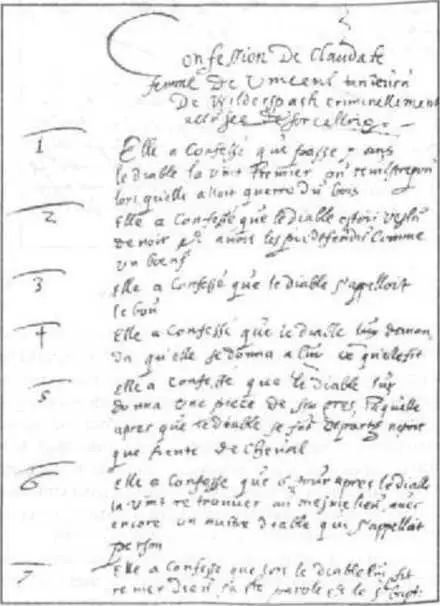 Confession De Claudate
femme De Vincent
De Wilderspach criminellement
accusée de sorcellerie
1
Elle a Confessé que passé 7 ans
le diable la vint premier
lors qu'elle alloit querre du bois
2
Elle a Confessé que le diable estoit vestu
de noir avoit les pieds fendus Comme
un boeuf
3
Elle a Confessé que le diable s'appelloit
le bon
4
Elle a Confessé que le diable luy deman
da qu'elle se donna a luy ce qu'elle fit
5
elle a confessé que le diable luy
donna une piece de laquelle
apres que le diable se fut departy
que fiente de Cheval
6
elle a Confessé que apres le diable
la vint retrouver au mesme lieu avec
encore un autre diable qui s'appelloit
person
7
Elle a Confessé que le diable luy fit
renier Dieu sa parole et le